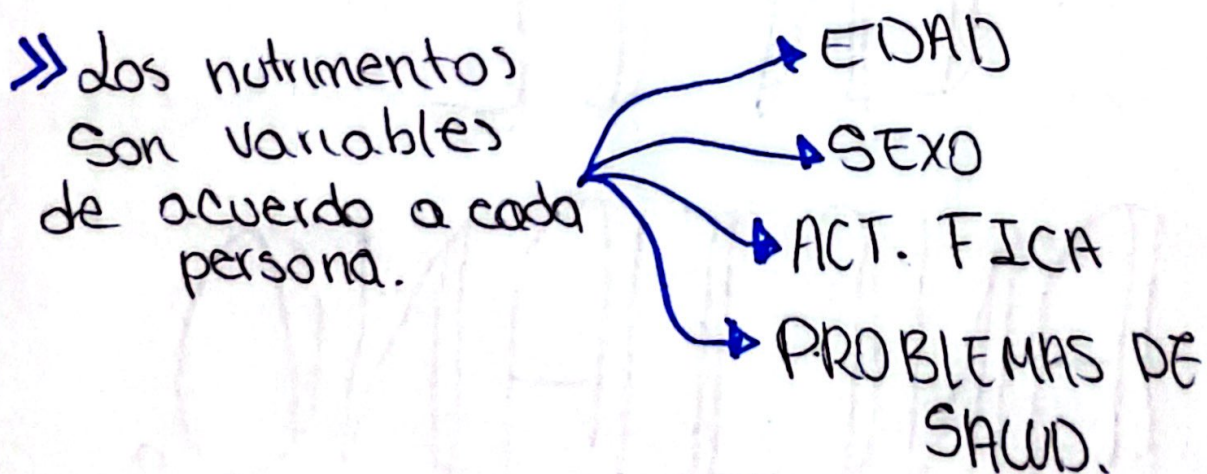 » Los nutrimentos
son variables
de acuerdo a cada
persona.
EDAD
SEXO
ACT. FICA
PROBLEMAS DE
SALUD.